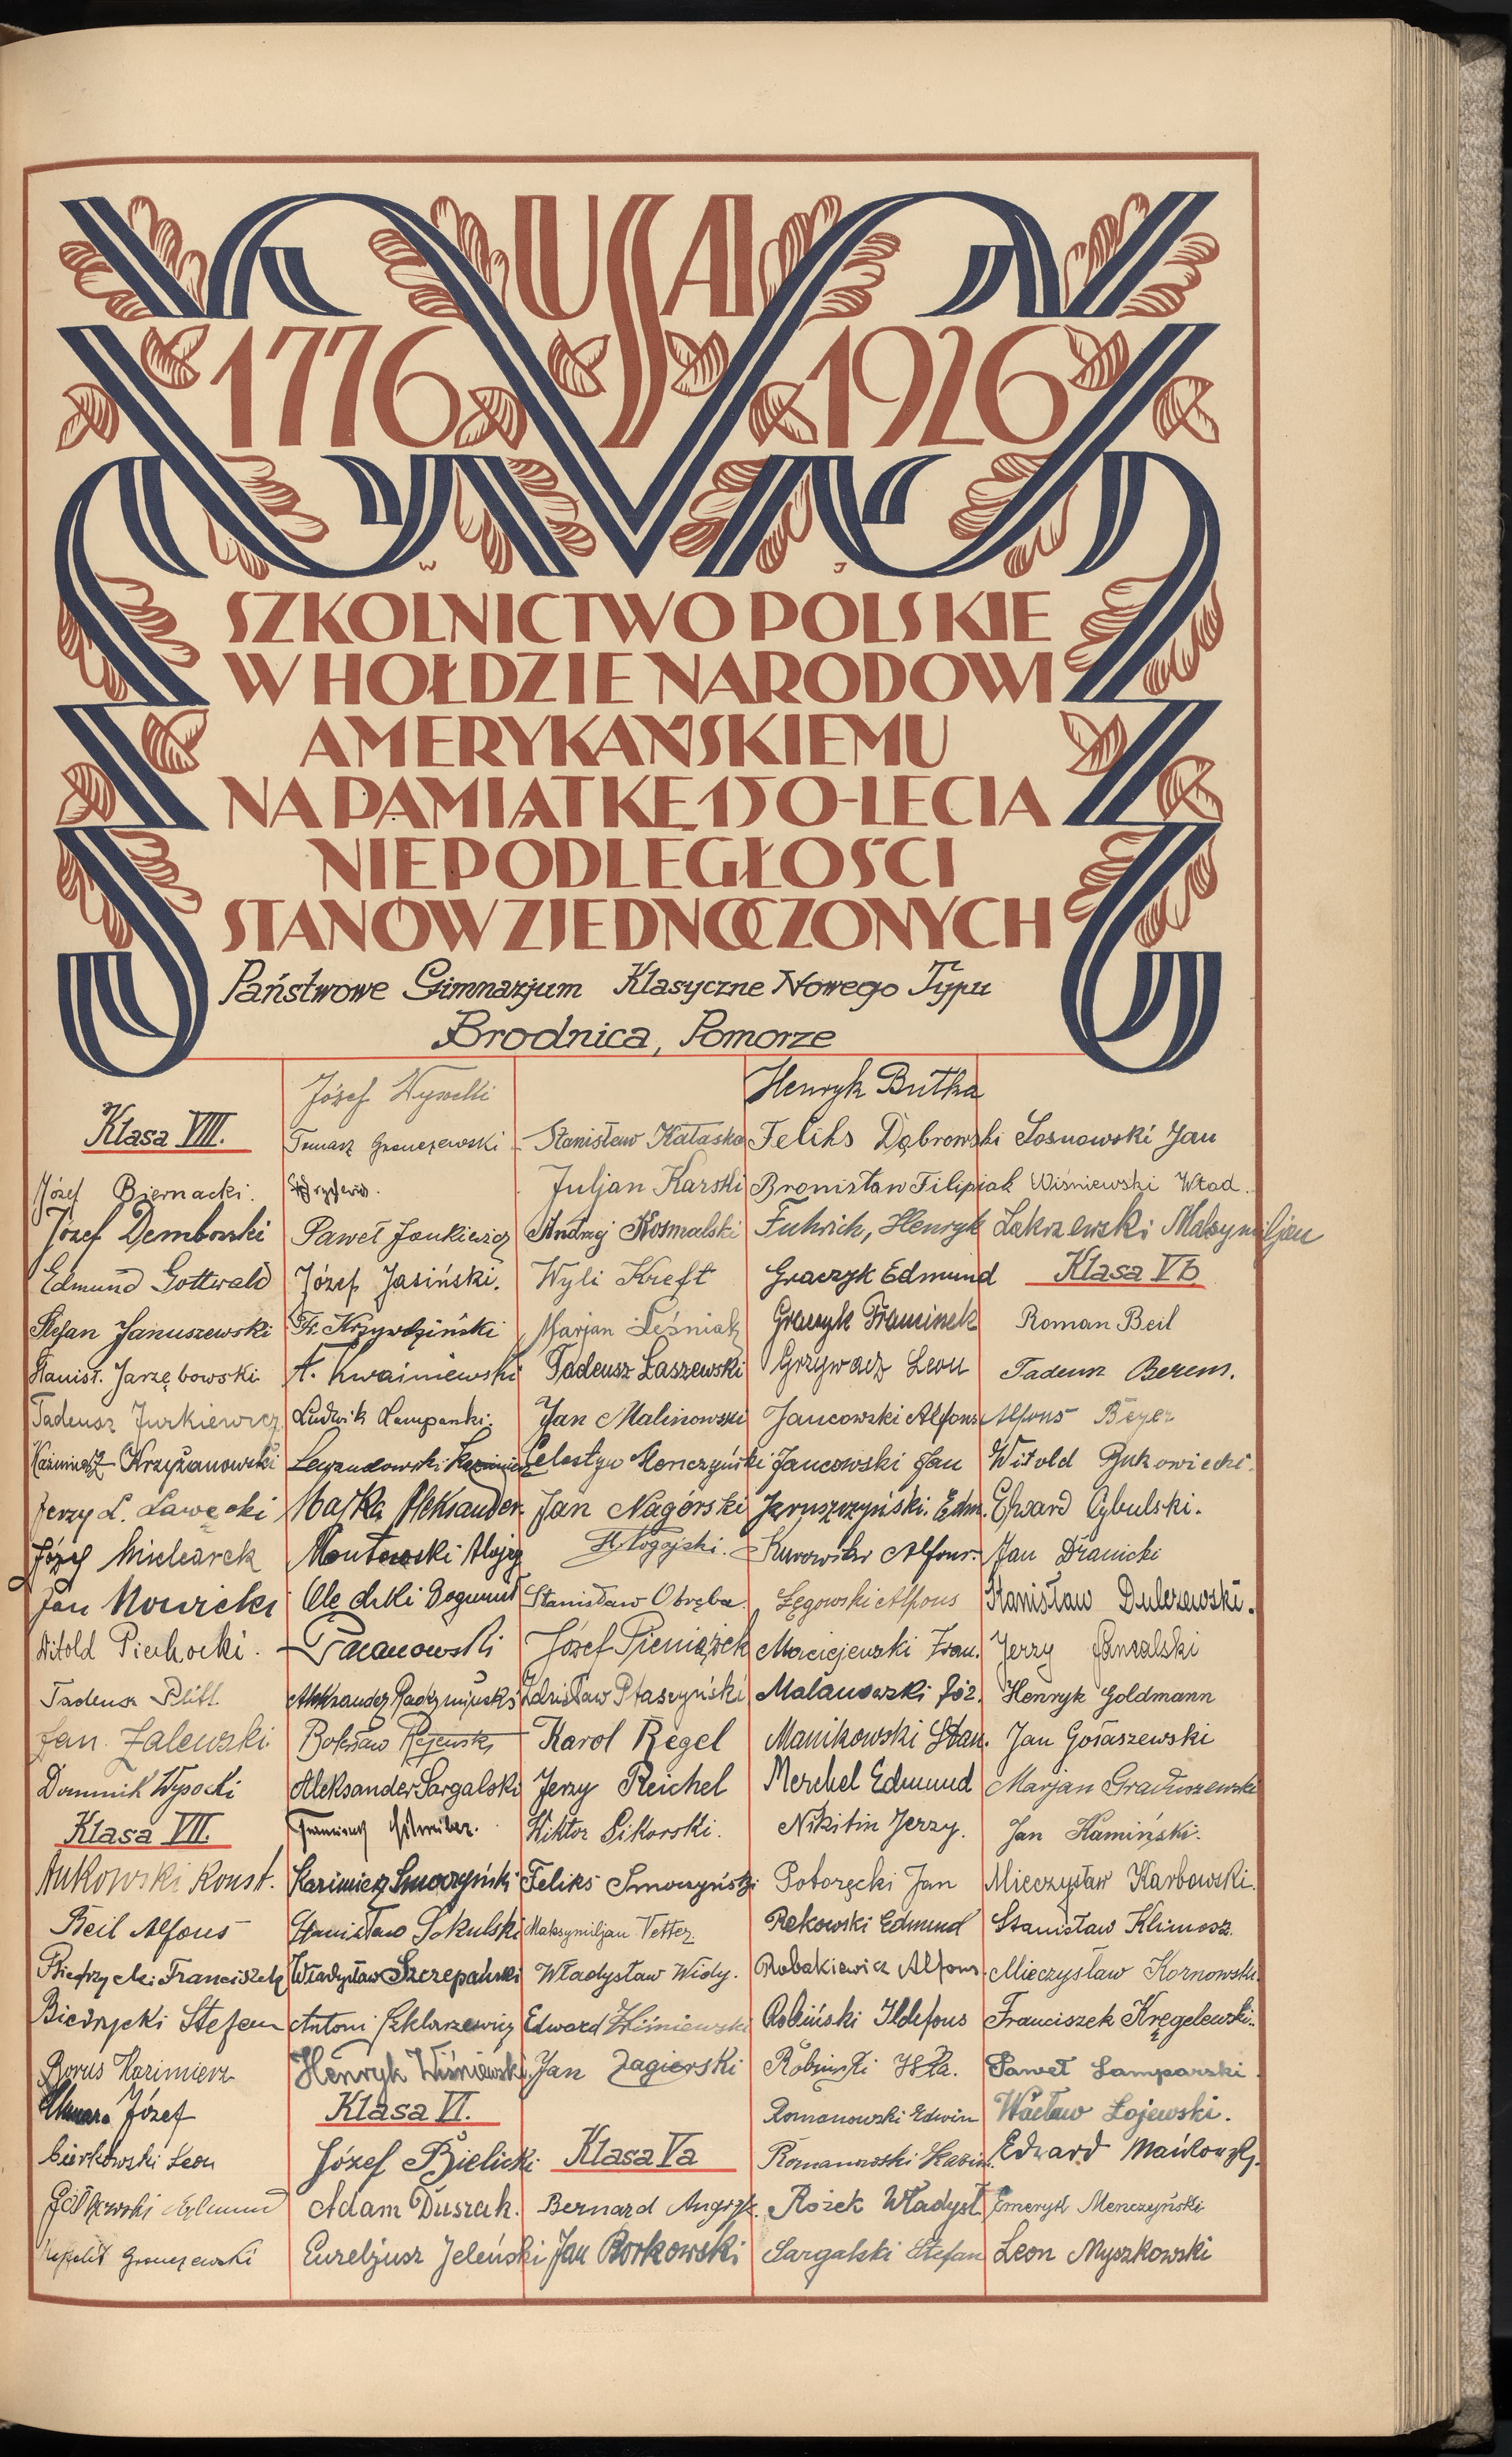 USA
1776 1926
W J
SZKOLNICTWO POLSKIE
W HOŁDZIE NARODOWI
AMERYKAŃSKIEMU
NA PAMIĄTKĘ 150-LECIA
NIEPODLEGŁOŚCI
STANÓW ZJEDNOCZONYCH
Państwowe Gimnazjum Klasyczne Nowego Typu
Brodnica, Pomorze
Klasa VIII.
Józef Biernacki.
Józef Dembowski
Edmund Gottwald
Stefan Januszewski
Stanisł. Jarzębowski
Tadeusz Jurkiewicz
Kazimierz Krzyżanowski
Jerzy L. Ławęcki
Józef Mielcarek
Jan Nowicki
Witold Piechocki.
Tadeusz
Jan Zalewski
Dominik Wysocki
Klasa VII.
Konst.
Beil Alfons
Franciszek
Biedrzycki Stefan
Borus Kazimierz
Józef
Cierkowski Leon
Edmund
Gronczewski
Józef Wysocki
Tomasz Gronczewski
Paweł Jankiewicz
Józef Jasiński.
Fr. Krzywdziński
A. Kwaśniewski
Ludwik Lamparski.
Lewandowski Kazimierz
Majka Aleksander
Montowski Alojzy
Bogumił
Pacanowski
Aleksander Radzymiński
Bolesław Rejewski
Aleksander Sargalski
Franciszek Schreiber.
Kazimierz Smoczyński
Stanisław Sokulski
Władysław Szczepański
Antoni Szklarzewicz
Henryk Wiśniewski
Klasa VI.
Józef Bielicki
Adam Duszak.
Eurebjusz Jeleński
Stanisław Kataska
Juljan Karski
Andrzej Kosmalski
Wyli Kreft
Marjan Leśniak
Tadeusz Łaszewski
Jan Malinowski
Celestyn Menczyński
Jan Nagórski
H. Nogajski.
Stanisław Obręba
Józef Pieniążek
Zdzisław Ptaszyński
Karol Regel
Jerzy Reichel
Wiktor Sikorski.
Feliks Smoczyński
Maksymiljan Vetter
Władysław Widy.
Edward Wiśniewski
Jan Zagierski
Klasa Va
Bernard Angrzyk.
Jan Borkowski
Henryk Butka
Feliks Dąbrowski
Bronisław Filipiak
Fuhrich, Henryk
Graczyk Edmund
Graczyk Franciszek
Grzywacz Leon
Jancowski Alfons
Jancowski Jan
Jaruszczyński. Edm.
Kurowski Alfons.
Łęgowski Alfons
Maciejewski Fran.
Malanowski Józ.
Manikowski Stan.
Merchel Edmund
Nikitin Jerzy.
Potoręcki Jan
Rekowski Edmund
Robakiewicz Alfons.
Robiński Ildefons
Robiński Wła.
Romanowski Edwin
Romanowski Kazim.
Rożek Władysł.
Sargalski Stefan
Sosnowski Jan
Wiśniewski Wład.
Zakrzewski Maksymiljan
Klasa Vb
Roman Beil
Tadeusz Berens.
Alfons Beyer
Witold Bukowiecki.
Edward Cybulski.
Jan Dranicki
Stanisław Dulczewski.
Jerzy
Henryk Goldmann
Jan Gołaszewski
Marjan Graduszewski
Jan Kamiński.
Mieczysław Karbowski.
Stanisław Klimosz.
Mieczysław Kornowski.
Franciszek Kręgelewski.
Paweł Lamparski.
Wacław Łojewski.
Edward Mańkowski.
Emeryk Menczyński
Leon Myszkowski